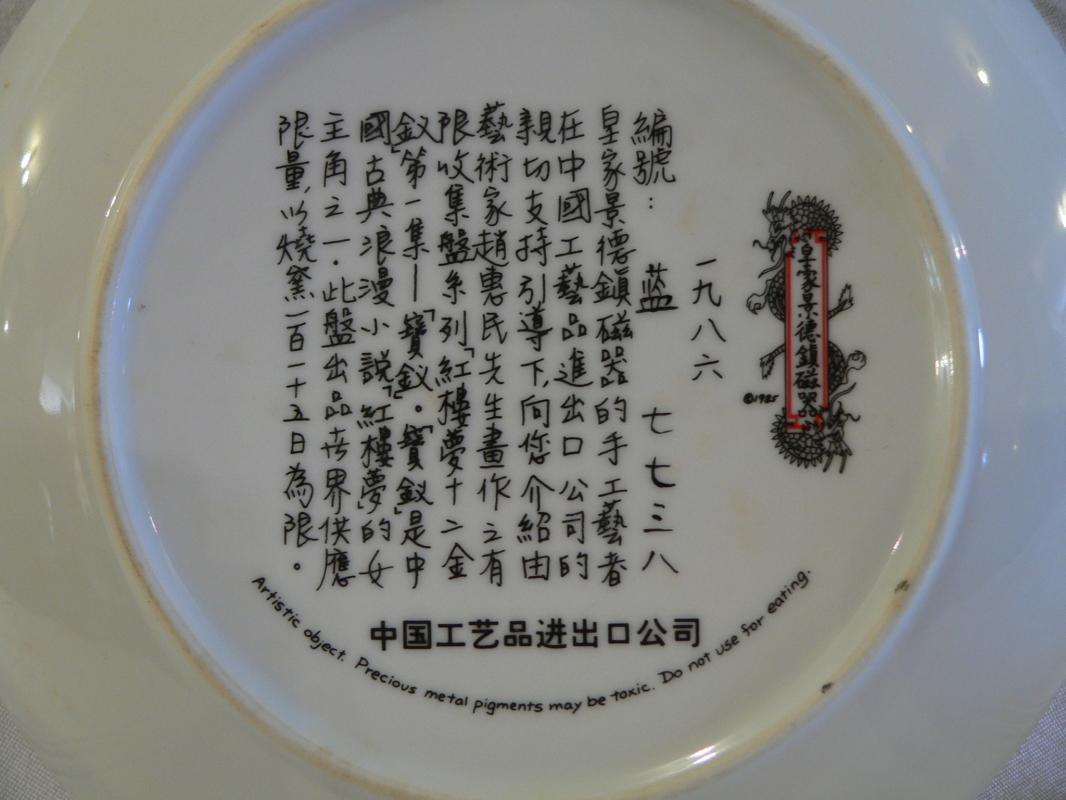 皇家景德鎮磁器
©1985
一九八六
編號：蓝 七七三八
皇家景德鎮磁器的手工藝者
在中國工藝品進出口公司的
親切支持引導下，向您介紹由
藝術家趙惠民先生畫作之有
限收集盤系列「紅樓夢十二金
釵」第一集—「寶釵」。「寶釵」是中
國古典浪漫小說「紅樓夢」的女
主角之一．此盤出品世界供應
限量，以燒窯一百一十五日為限。
中国工艺品进出口公司
Artistic object. Precious metal pigments may be toxic. Do not use for eating.